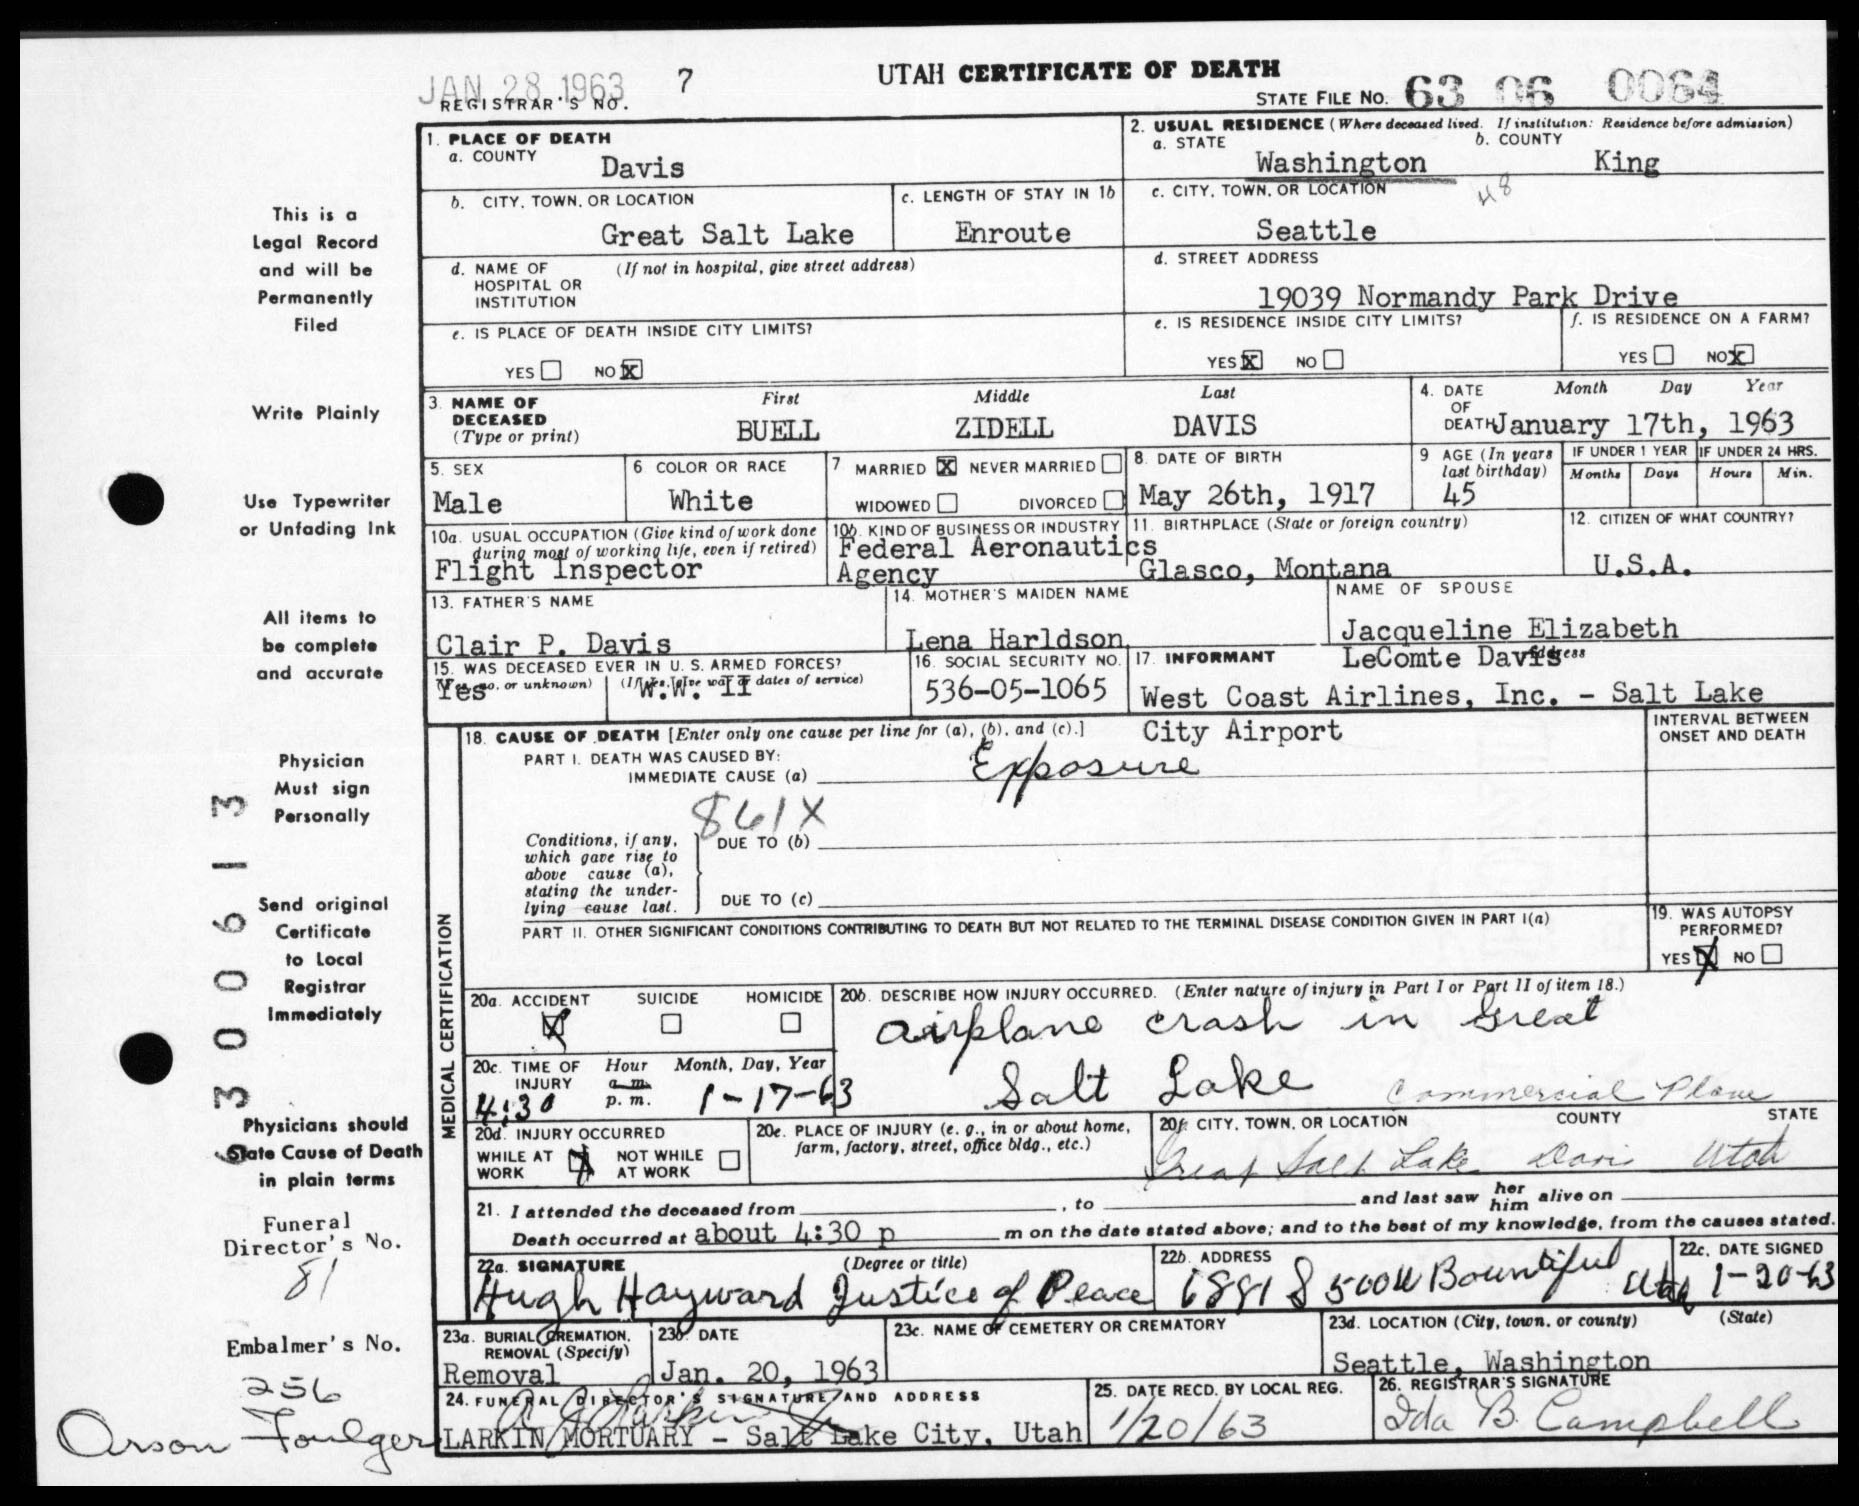 JAN 28 1963
REGISTRAR'S NO. 7
UTAH CERTIFICATE OF DEATH
STATE FILE NO. 63 06 0064
This is a
Legal Record
and will be
Permanently
Filed
Write Plainly
Use Typewriter
or Unfading Ink
All items to
be complete
and accurate
Physician
Must sign
Personally
Send original
Certificate
to Local
Registrar
Immediately
Physicians should
State Cause of Death
in plain terms
Funeral
Director's No.
81
Embalmer's No.
256
Orson Foulger
6300613
1. PLACE OF DEATH
a. COUNTY
Davis
2. USUAL RESIDENCE (Where deceased lived. If institution: Residence before admission)
a. STATE b. COUNTY
Washington King
48
b. CITY, TOWN, OR LOCATION
Great Salt Lake
c. LENGTH OF STAY IN 1b
Enroute
c. CITY, TOWN, OR LOCATION
Seattle
d. NAME OF HOSPITAL OR INSTITUTION (If not in hospital, give street address)
d. STREET ADDRESS
19039 Normandy Park Drive
e. IS PLACE OF DEATH INSIDE CITY LIMITS?
YES NO X
e. IS RESIDENCE INSIDE CITY LIMITS?
YES X NO
f. IS RESIDENCE ON A FARM?
YES NO X
3. NAME OF DECEASED (Type or print)
First Middle Last
BUELL ZIDELL DAVIS
4. DATE OF DEATH Month Day Year
January 17th, 1963
5. SEX
Male
6 COLOR OR RACE
White
7 MARRIED X NEVER MARRIED
WIDOWED DIVORCED
8. DATE OF BIRTH
May 26th, 1917
9 AGE (In years last birthday)
45
IF UNDER 1 YEAR IF UNDER 24 HRS.
Months Days Hours Min.
10a. USUAL OCCUPATION (Give kind of work done during most of working life, even if retired)
Flight Inspector
10b. KIND OF BUSINESS OR INDUSTRY
Federal Aeronautics
Agency
11. BIRTHPLACE (State or foreign country)
Glasco, Montana
12. CITIZEN OF WHAT COUNTRY?
U.S.A.
13. FATHER'S NAME
Clair P. Davis
14. MOTHER'S MAIDEN NAME
Lena Harldson
NAME OF SPOUSE
Jacqueline Elizabeth
LeComte Davis
15. WAS DECEASED EVER IN U. S. ARMED FORCES?
(Yes, no. or unknown) (If yes, give war or dates of service)
Yes W.W. II
16. SOCIAL SECURITY NO.
536-05-1065
17. INFORMANT Address
West Coast Airlines, Inc. - Salt Lake
City Airport
MEDICAL CERTIFICATION
18. CAUSE OF DEATH [Enter only one cause per line for (a), (b), and (c).]
PART I. DEATH WAS CAUSED BY:
IMMEDIATE CAUSE (a) Exposure
INTERVAL BETWEEN
ONSET AND DEATH
861X
Conditions, if any,
which gave rise to
above cause (a),
stating the under-
lying cause last.
DUE TO (b)
DUE TO (c)
PART II. OTHER SIGNIFICANT CONDITIONS CONTRIBUTING TO DEATH BUT NOT RELATED TO THE TERMINAL DISEASE CONDITION GIVEN IN PART I(a)
19. WAS AUTOPSY
PERFORMED?
YES X NO
20a. ACCIDENT SUICIDE HOMICIDE
X
20b. DESCRIBE HOW INJURY OCCURRED. (Enter nature of injury in Part I or Part II of item 18.)
airplane crash in Great
Salt Lake Commercial Plane
20c. TIME OF INJURY Hour Month, Day, Year
a. m.
p. m.
4:30 1-17-63
20d. INJURY OCCURRED
WHILE AT WORK X NOT WHILE AT WORK
20e. PLACE OF INJURY (e. g., in or about home, farm, factory, street, office bldg., etc.)
20f. CITY, TOWN, OR LOCATION COUNTY STATE
Great Salt Lake Davis Utah
21. I attended the deceased from , to and last saw her him alive on
Death occurred at about 4:30 p m on the date stated above; and to the best of my knowledge, from the causes stated.
22a. SIGNATURE (Degree or title)
Hugh Hayward Justice of Peace
22b. ADDRESS
6881 S 500W Bountiful Utah
22c. DATE SIGNED
1-20-63
23a. BURIAL, CREMATION, REMOVAL (Specify)
Removal
23b. DATE
Jan. 20, 1963
23c. NAME OF CEMETERY OR CREMATORY
23d. LOCATION (City, town, or county) (State)
Seattle, Washington
24. FUNERAL DIRECTOR'S SIGNATURE AND ADDRESS
LARKIN MORTUARY - Salt Lake City, Utah
25. DATE RECD. BY LOCAL REG.
1/20/63
26. REGISTRAR'S SIGNATURE
Ida B. Campbell